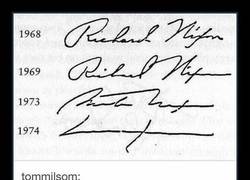 1968 Richard Nixon
1969 Richard Nixon
1973
1974
tommilsom: